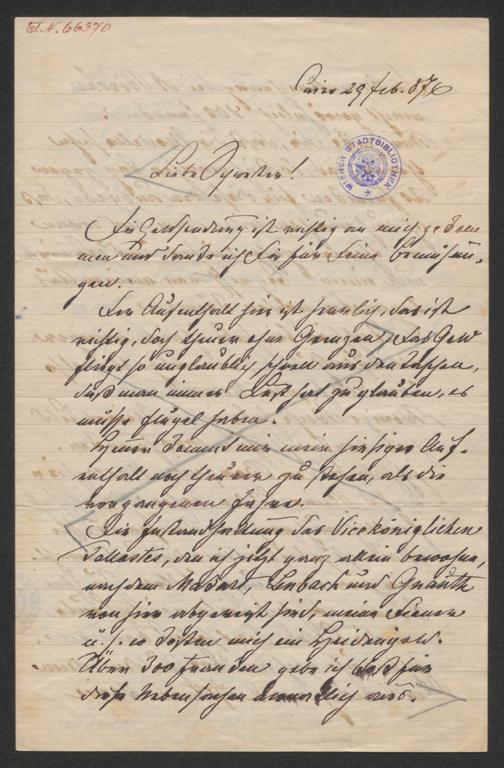 J.N. 66370
Cairo 29 feb. 876
WIENER STADTBIBLIOTHEK
Liebe Schwester!
Die Geldsendung ist richtig an mich gekom
men und danke ich Dir für Deine Bemühun,
gen.
Der Aufenthalt hier ist herrlich, das ist
richtig, doch theuer ohne Grenzen, das Geld
fliegt so unglaublich schnell aus den Taschen,
daß man immer Lust hat zu glauben, es
müsse Flügel haben.
Heuer kommt mir mein hiesiger Auf,
enthalt noch theurer zu stehen, als die
vergangenen Jahre.
Die Instandhaltung des Viceköniglichen
Pallastes, den ich jetzt ganz allein bewohne,
nachdem Makart, Lenbach und Gnauth
von hier abgereist sind, meine Diener
u. s. w kosten mich ein Heidengeld.
Über 300 Franken gebe ich für
diese Nebensachen monatlich aus.